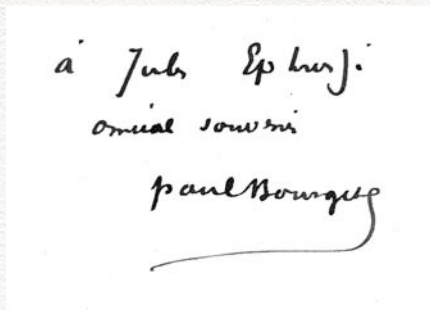 à Jules Ephrussi
amical souvenir
Paul Bourget